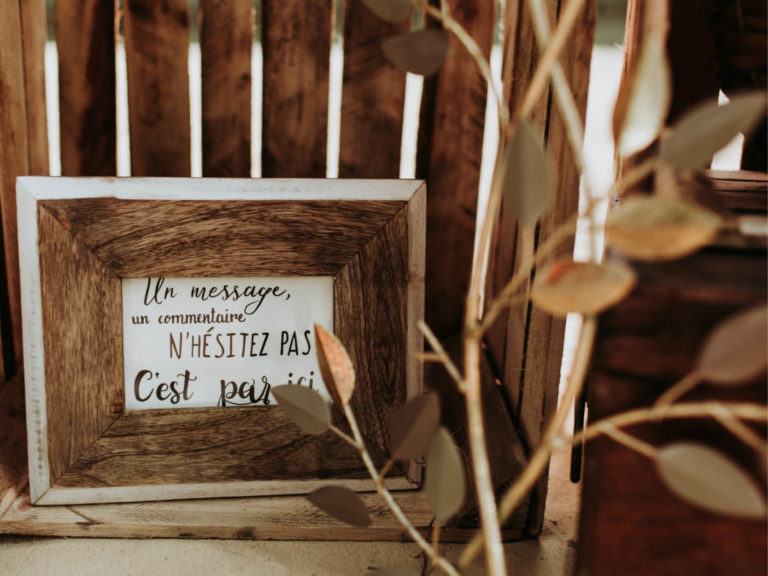 Un message,
un commentaire
N'HÉSITEZ PAS
C'est par ici